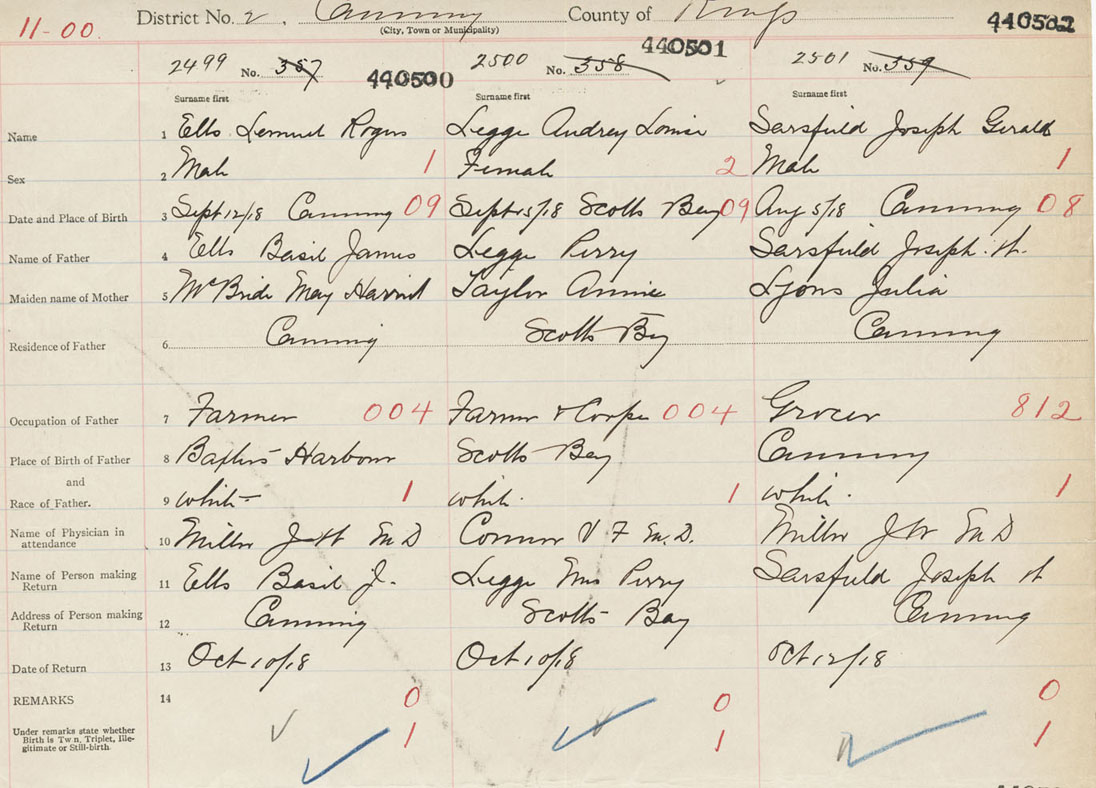 11-00. District No. 2, Canning County of Kings 440502
(City, Town or Municipality)
2499 No. 357 440500 2500 No. 358 440501 2501 No. 359
Surname first Surname first Surname first
Name 1 Ells Lemuel Rogers Legge Audrey Sarsfield Joseph Gerald
Sex 2 Male 1 Female 2 Male 1
Date and Place of Birth 3 Sept 12/18 Canning 09 Sept 15/18 Scotts Bay 09 Aug 5/18 Canning 08
Name of Father 4 Ells Basil James Legge Perry Sarsfield Joseph H.
Maiden name of Mother 5 McBride May Harriet Taylor Annie Lyons Julia
Residence of Father 6 Canning Scotts Bay Canning
Occupation of Father 7 Farmer 004 Farmer & Cooper 004 Grocer 812
Place of Birth of Father 8 Baxters Harbour Scotts Bay Canning
and
Race of Father. 9 white 1 white. 1 white. 1
Name of Physician in
attendance 10 Miller J W M D V F M.D. Miller J W M D
Name of Person making
Return 11 Ells Basil J. Legge Mrs Perry Sarsfield Joseph H
Address of Person making
Return 12 Canning Scotts Bay Canning
Date of Return 13 Oct 10/18 Oct 10/18 Oct 12/18
REMARKS 14 0 0 0
Under remarks state whether
Birth is Twin, Triplet, Ille-
gitimate or Still-birth. 1 1 1